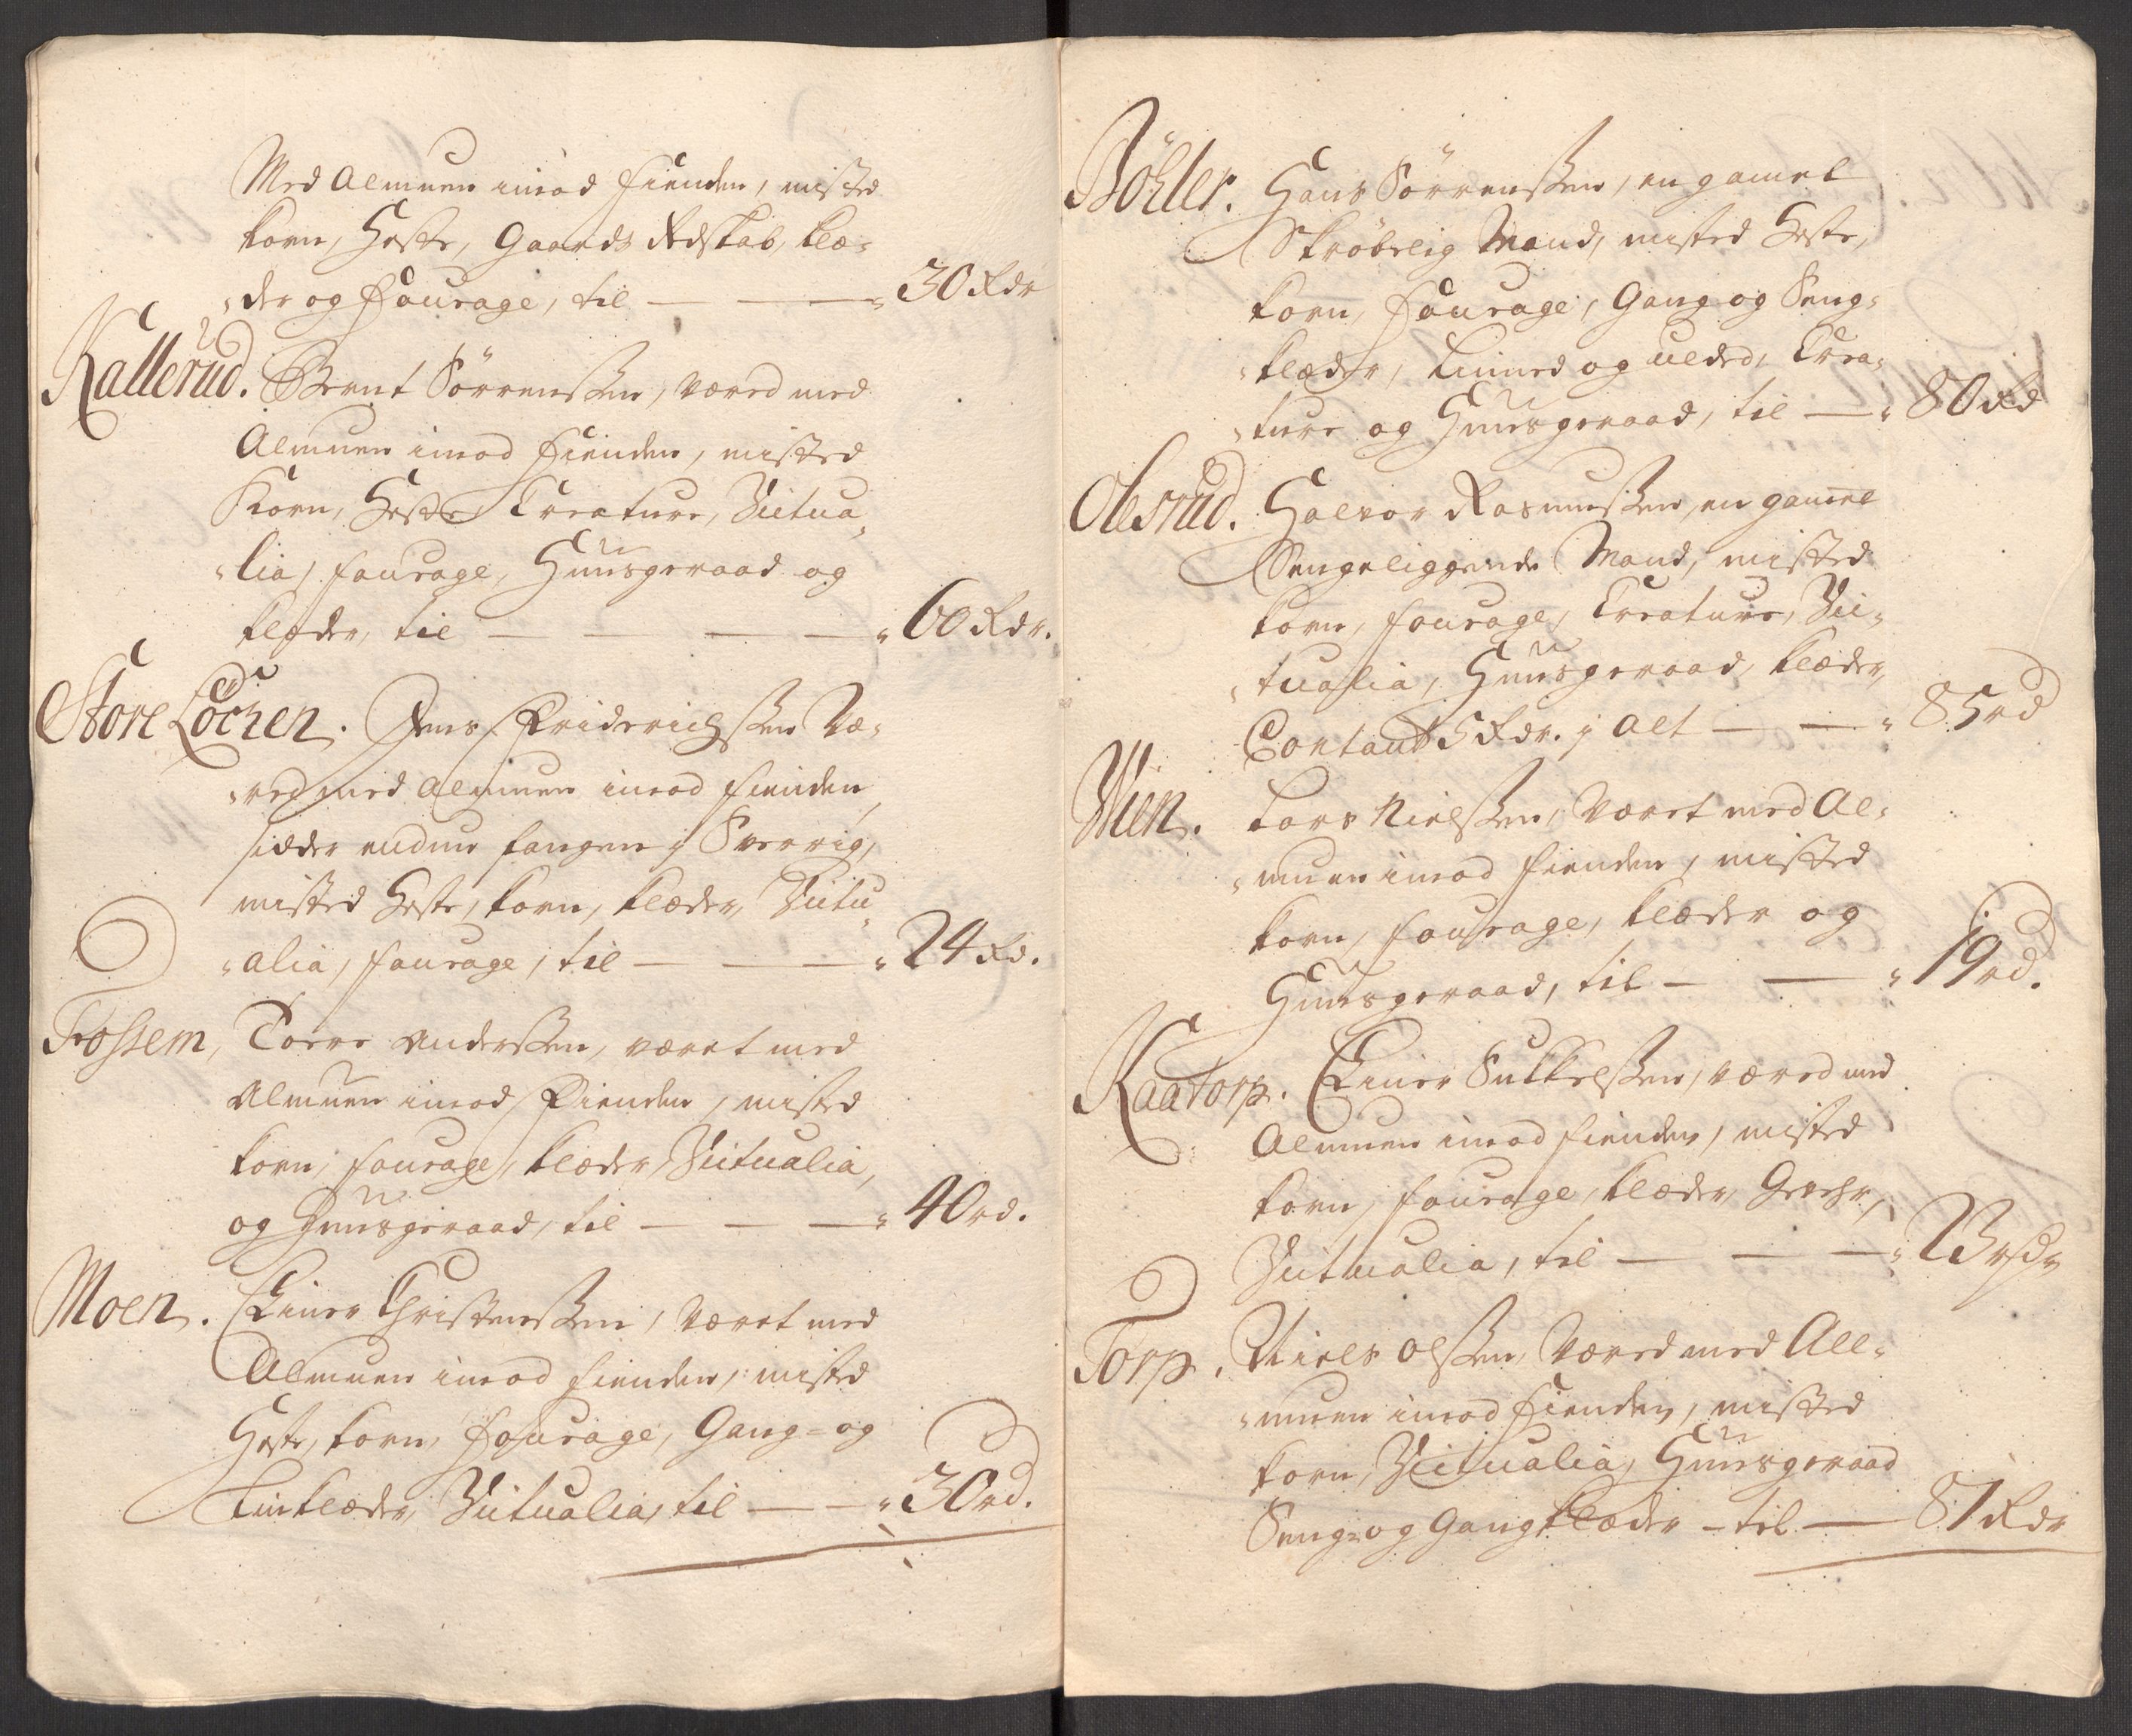 Med Almuen imod Fienden, misted
korn, Heste, Gaards Redskab, klæ-
der og Fourage, til — — — " 30 Rdr
Kallerud. Bernt Sörrenssen, væred med
Almuen imod Fienden, misted
Korn, Heste Creature, Victua-
lia, fourage, Huusgeraad og
klæder, til — — — — " 60 Rdr.
Store Löchen. Jens Friderichssen Væ-
red med Almuen imod Fienden,
sidder endnu fangen j Sverrig,
misted Heste, korn, klæder, Victu-
alia, fourage, til — — — " 24 Rd.
Frossem, Torre Anderssen, været med
Almuen imod Fienden, misted
korn, fourage, klæder, Victualia,
og Huusgeraad, til — — — " 40 rd.
Moen. Einer Christenssen, været med
Almuen imod fienden, misted
Heste, korn, Fourage, Gang- og
Linklæder, Victualia, til — — " 30 rd.
Böhler. Hans Sörrenssen, en gamel
Skröbelig Mand, misted Heste,
korn, Fourage, Gang og Seng-
klæder, Linned og ulded, Crea-
ture og Huusgeraad, til — " 80 Rd
Olesrud. Halvor Rasmussen, en gammel
Sengeliggende Mand, misted
korn, fourage, Creature, Vic-
tualia, Huusgeraad, klæder,
Contant 5 Rdr. j alt — — " 85 rd
Wien. Lars Nielssen, Været med Al-
muen imod Fienden, misted
korn, fourage, klæder og
Huusgeraad, til — — " 19 rd.
Kaatorp. Einer Sukkelssen, væred med
Almuen imod fienden, misted
korn, fourage, klæder, Gevehr,
Victualia, til — — — " 23 rdr
Torp. Niels Olssen, Væred med All-
muen imod Fienden, misted
korn, Victualia, Huusgeraad
Seng- og Gangklæder - til — 81 Rdr